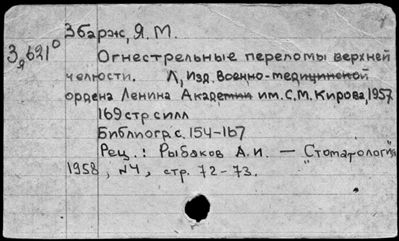 Збарж, Я. М.
3я621⁰
Огнестрельные переломы верхней
челюсти. Л, Изд. Военно-медицинской
ордена Ленина Академии им. С. М. Кирова, 1957
169 стр с илл
Библиогр с. 154-167
Рец.: Рыбаков А. И. — "Стоматология"
1958, №4, стр. 72-73.